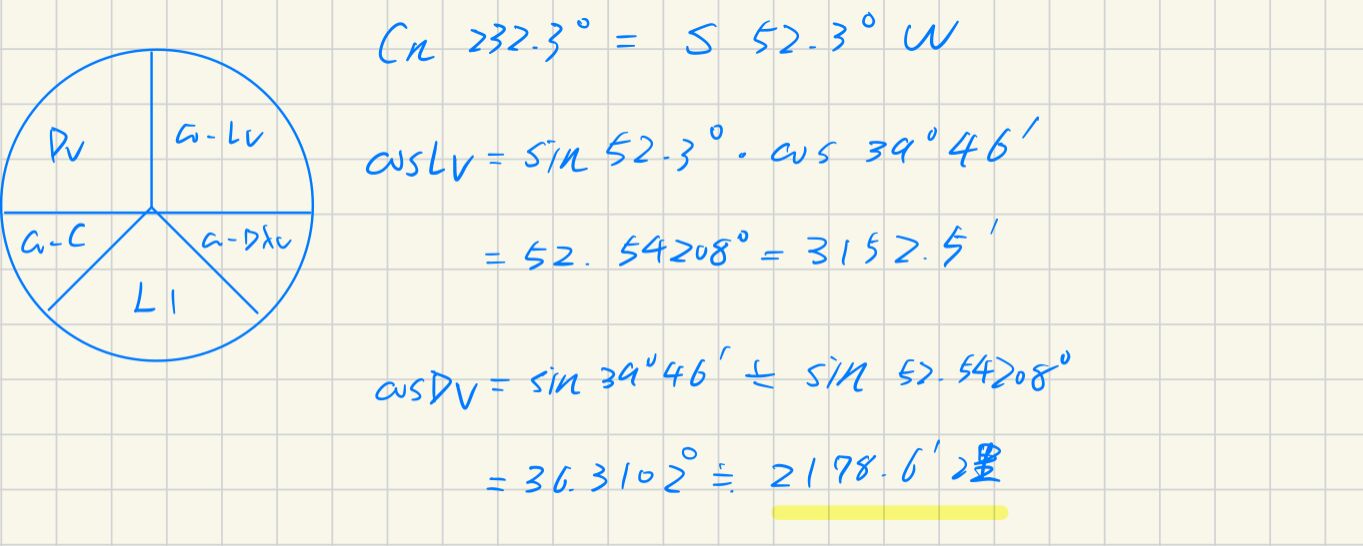 Cn 232.3° = S 52.3° W
Dv
co-Lv
co-C
co-Dλv
L1
cosLv = sin 52.3° · cos 39°46′
= 52.54208° = 3152.5′
cosDv = sin 39°46′ ÷ sin 52.54208°
= 36.3102° ≒ 2178.6′